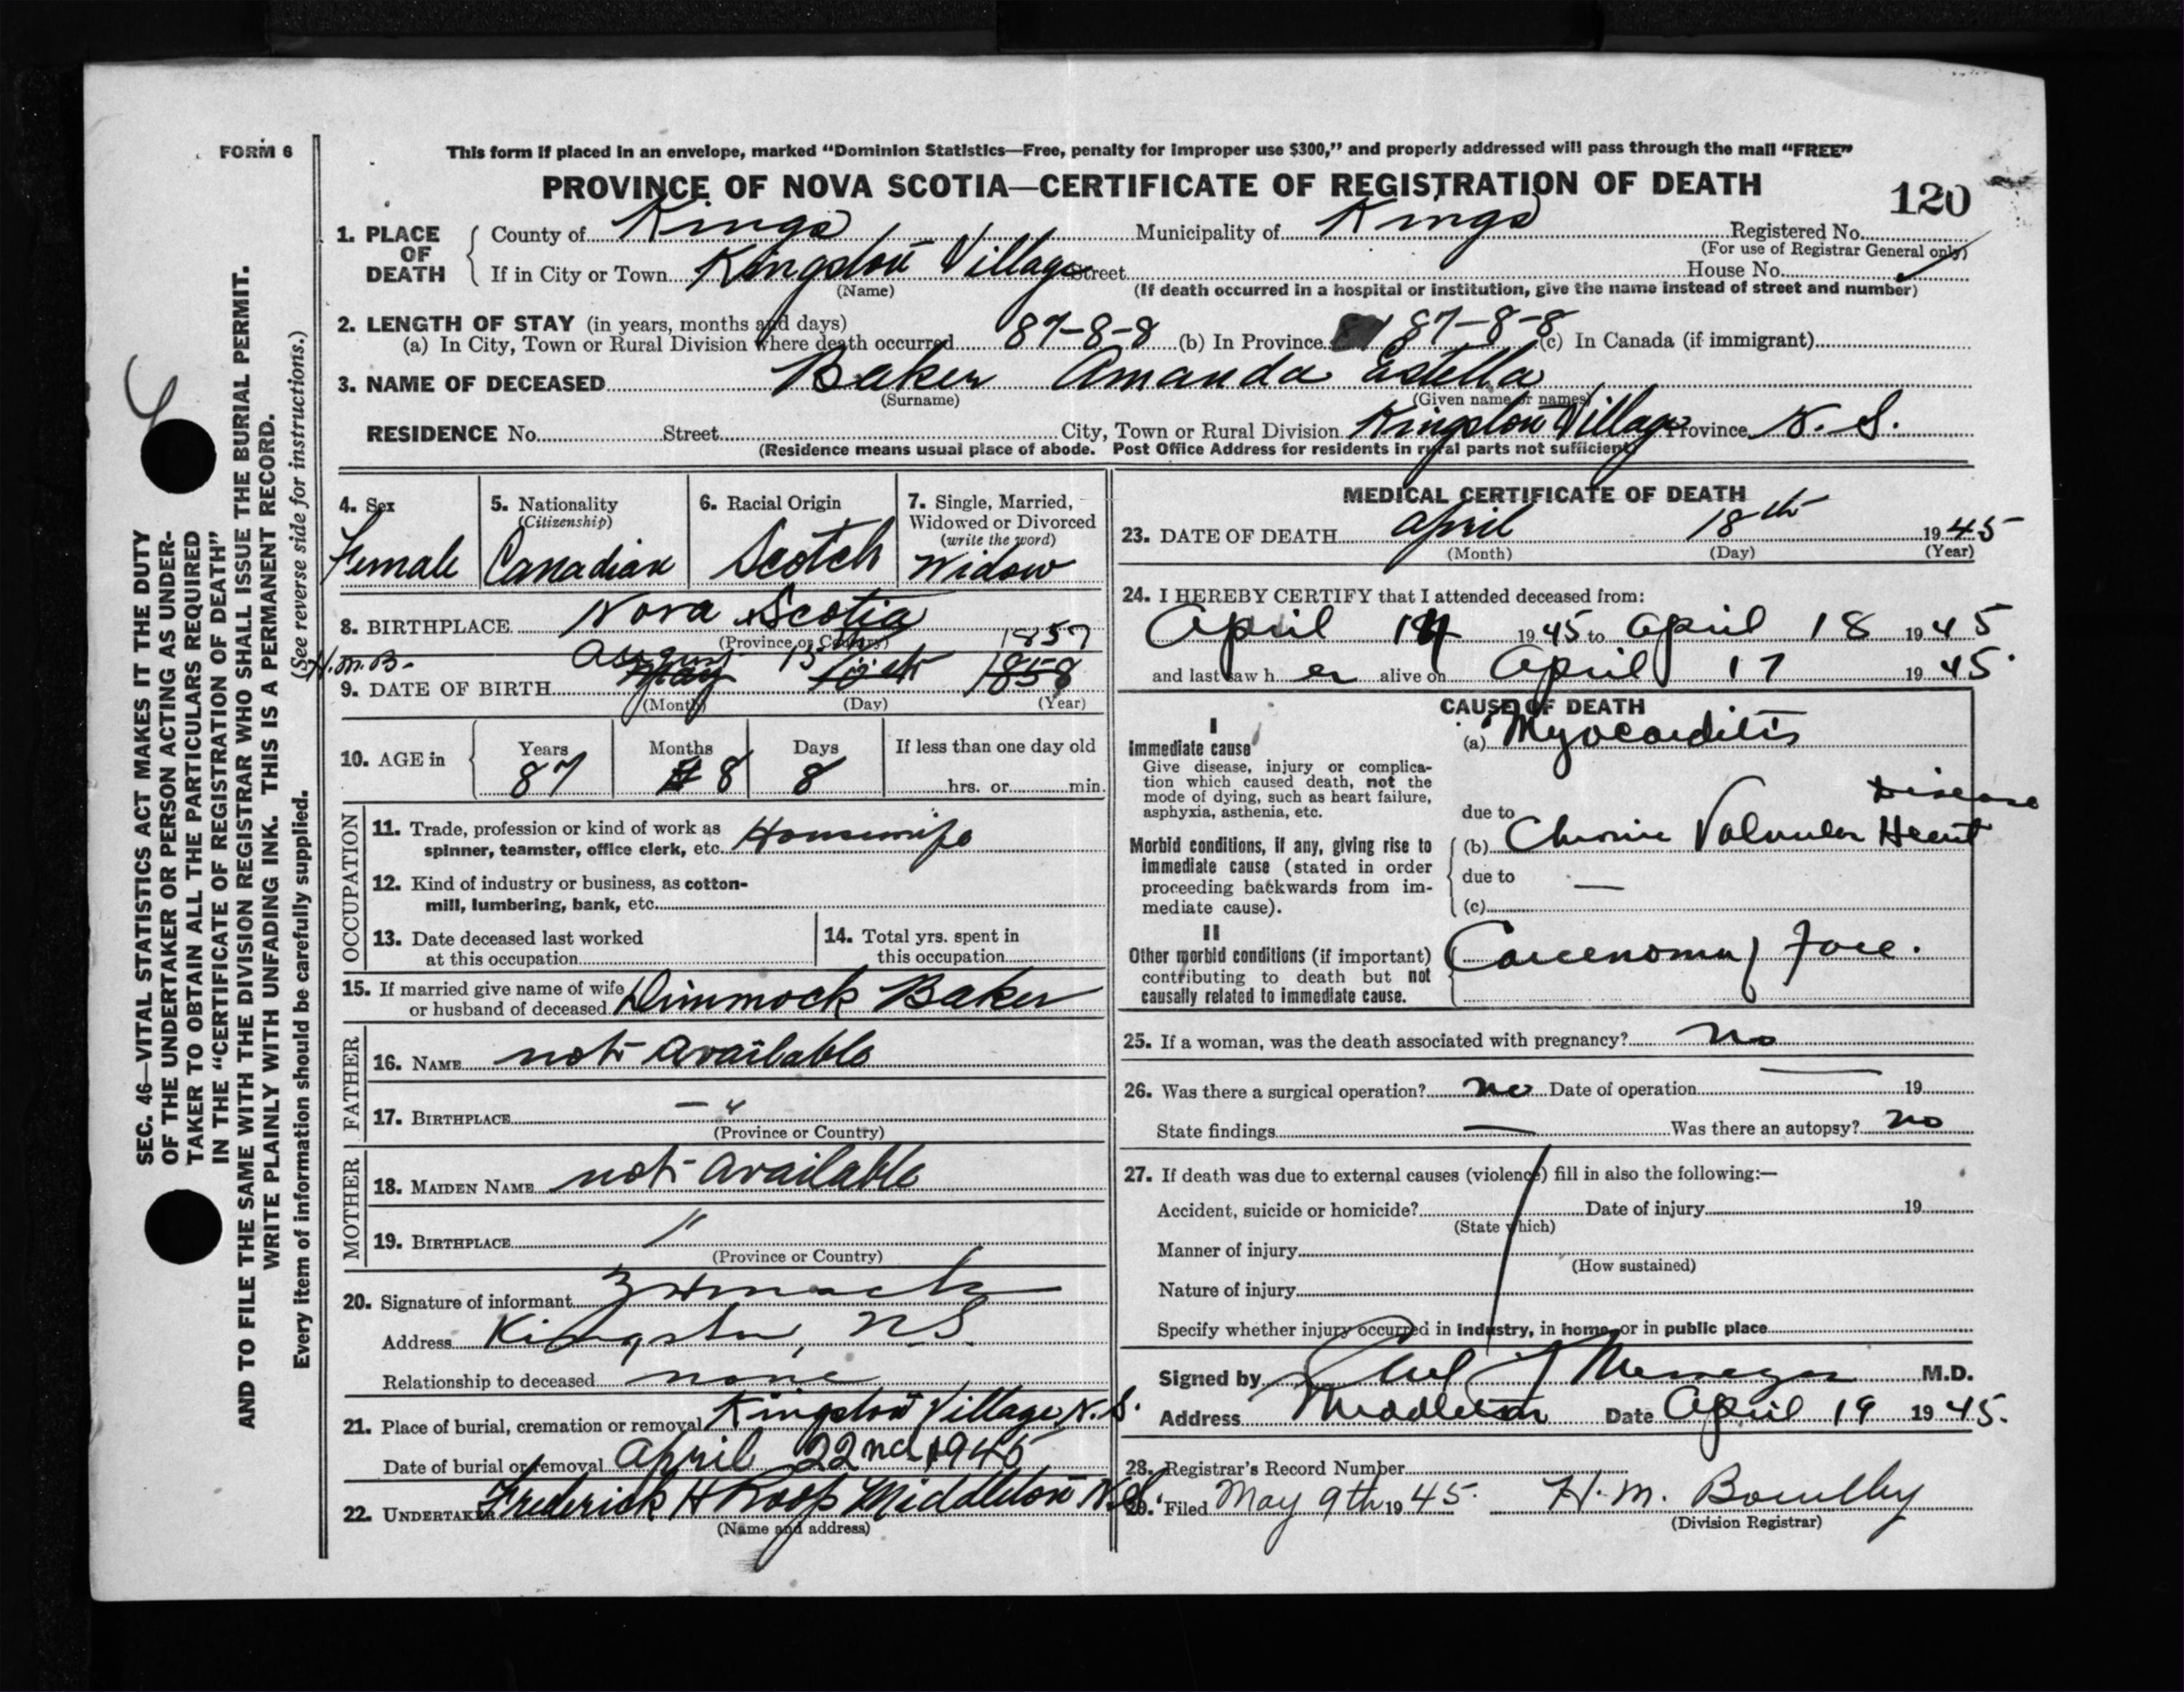 FORM 6
This form if placed in an envelope, marked “Dominion Statistics—Free, penalty for improper use $300,” and properly addressed will pass through the mail “FREE”
PROVINCE OF NOVA SCOTIA—CERTIFICATE OF REGISTRATION OF DEATH
120
1. PLACE OF DEATH
County of Kings Municipality of Kings Registered No.
(For use of Registrar General only)
If in City or Town Kingston Village Street House No.
(Name) (If death occurred in a hospital or institution, give the name instead of street and number)
2. LENGTH OF STAY (in years, months and days)
(a) In City, Town or Rural Division where death occurred 87-8-8 (b) In Province 87-8-8 (c) In Canada (if immigrant)
3. NAME OF DECEASED Baker Amanda Estella
(Surname) (Given name or names)
RESIDENCE No. Street City, Town or Rural Division Kingston Village Province N. S.
(Residence means usual place of abode. Post Office Address for residents in rural parts not sufficient)
4. Sex
Female
5. Nationality
(Citizenship)
Canadian
6. Racial Origin
Scotch
7. Single, Married,
Widowed or Divorced
(write the word)
Widow
8. BIRTHPLACE Nova Scotia
(Province or Country)
H.M.B. August 1857
9. DATE OF BIRTH May 10th 1858
(Month) (Day) (Year)
10. AGE in
Years 87
Months 8
Days 8
If less than one day old
hrs. or min.
OCCUPATION
11. Trade, profession or kind of work as
spinner, teamster, office clerk, etc. Housewife
12. Kind of industry or business, as cotton-
mill, lumbering, bank, etc.
13. Date deceased last worked
at this occupation
14. Total yrs. spent in
this occupation
15. If married give name of wife
or husband of deceased Dimmock Baker
FATHER
16. NAME not available
17. BIRTHPLACE — "
(Province or Country)
MOTHER
18. MAIDEN NAME not available
19. BIRTHPLACE "
(Province or Country)
20. Signature of informant
Address Kingston, NS
Relationship to deceased none
21. Place of burial, cremation or removal Kingston Village, N. S.
Date of burial or removal April 22nd 1945
22. UNDERTAKER Frederick H Roop Middleton N.S.
(Name and address)
MEDICAL CERTIFICATE OF DEATH
23. DATE OF DEATH April 18th 1945
(Month) (Day) (Year)
24. I HEREBY CERTIFY that I attended deceased from:
April 14 1945 to April 18 1945
and last saw her alive on April 17 1945.
CAUSE OF DEATH
I
Immediate cause
Give disease, injury or complica-
tion which caused death, not the
mode of dying, such as heart failure,
asphyxia, asthenia, etc.
(a) Myocarditis
due to
Morbid conditions, if any, giving rise to
immediate cause (stated in order
proceeding backwards from im-
mediate cause).
(b) Chronic Valvular Heart Disease
due to —
(c)
II
Other morbid conditions (if important)
contributing to death but not
causally related to immediate cause.
Carcenoma of face.
25. If a woman, was the death associated with pregnancy? no
26. Was there a surgical operation? no Date of operation — 19
State findings — Was there an autopsy? no
27. If death was due to external causes (violence) fill in also the following:—
Accident, suicide or homicide? Date of injury 19
(State which)
Manner of injury
(How sustained)
Nature of injury
Specify whether injury occurred in industry, in home, or in public place
Signed by M.D.
Address Middleton Date April 19 1945.
28. Registrar's Record Number
29. Filed May 9th 1945. H. M. Bowlby
(Division Registrar)
SEC. 46—VITAL STATISTICS ACT MAKES IT THE DUTY
OF THE UNDERTAKER OR PERSON ACTING AS UNDER-
TAKER TO OBTAIN ALL THE PARTICULARS REQUIRED
IN THE “CERTIFICATE OF REGISTRATION OF DEATH”
AND TO FILE THE SAME WITH THE DIVISION REGISTRAR WHO SHALL ISSUE THE BURIAL PERMIT.
WRITE PLAINLY WITH UNFADING INK. THIS IS A PERMANENT RECORD.
Every item of information should be carefully supplied. (See reverse side for instructions.)